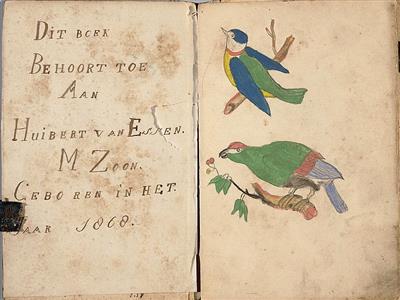 DIT BOEK
BEHOORT TOE
AAN
HUIBERT VAN ESSEN.
M ZOON.
GEBOREN IN HET
JAAR 1868.